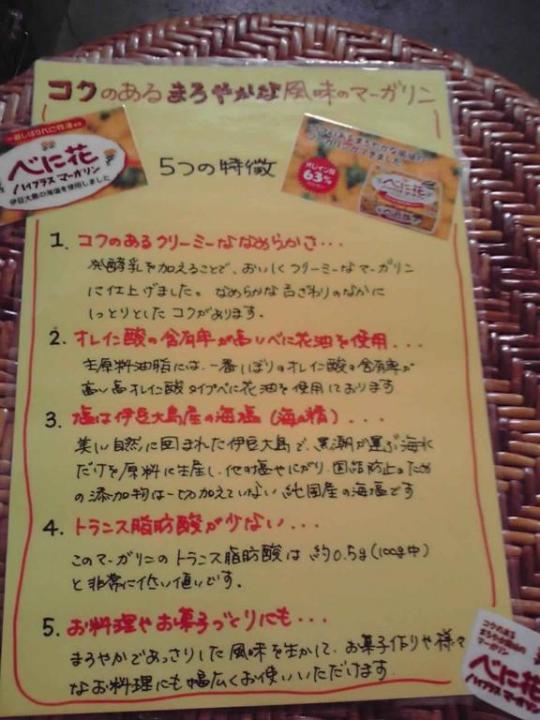 コクのあるまろやかな風味のマーガリン
一番しぼりべに花油
べに花
ハイプラスマーガリン
伊豆大島の海塩を使用しました
オレイン酸
63%
べに花
5つの特徴
1. コクのあるクリーミーななめらかさ...
発酵乳を加えることで、おいしくクリーミーなマーガリン
に仕上げました。なめらかな舌ざわりのなかに
しっとりとしたコクがあります。
2. オレイン酸の含有率が高いべに花油を使用...
主原料油脂には、一番しぼりのオレイン酸の含有率が
高い高オレイン酸タイプべに花油を使用しております
3. 塩は伊豆大島産の海塩(海の精)...
美しい自然に囲まれた伊豆大島で、黒潮が運ぶ海水
だけを原料に生産し、他の塩やにがり、固結防止のため
の添加物は一切加えていない純国産の海塩です
4. トランス脂肪酸が少ない...
このマーガリンのトランス脂肪酸は約0.5g(100g中)
と非常に低い値いです。
5. お料理やお菓子づくりにも...
まろやかであっさりした風味を生かして、お菓子作りや様々
なお料理にも幅広くお使いいただけます
コクのある
まろやかな風味の
マーガリン
べに花
ハイプラスマーガリン